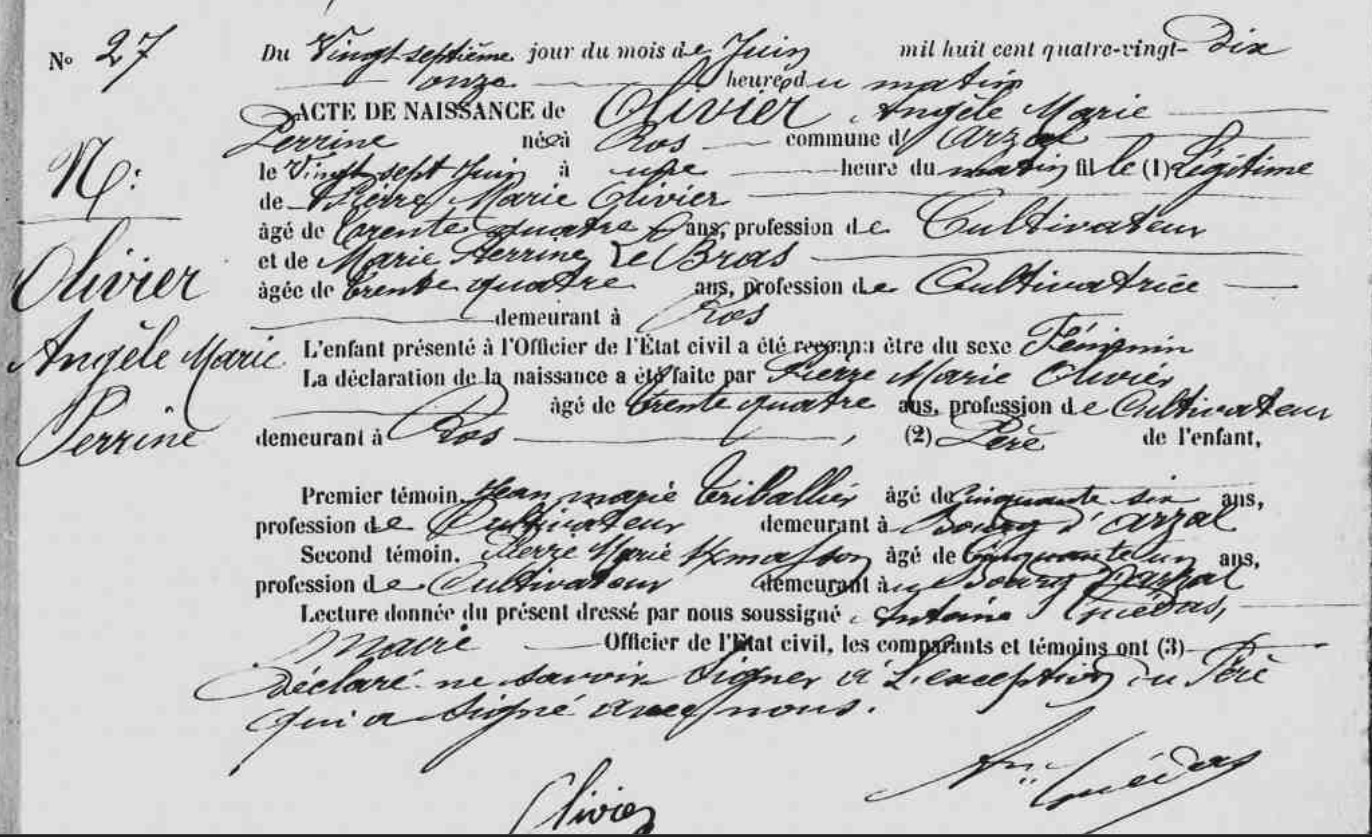 N° 27
Du Vingt septième jour du mois de Juin mil huit cent quatre-vingt-Dix
onze heures du matin
ACTE DE NAISSANCE de Olivier Angèle Marie
Perrine née à Ros commune d' Arzal
le Vingt sept Juin à une heure du matin fille (1) Légitime
de Pierre Marie Olivier
âgé de trente quatre ans, profession de Cultivateur
et de Marie Perrine Le Bras
âgée de trente quatre ans, profession de Cultivatrice
demeurant à Ros
L'enfant présenté à l'Officier de l'État civil a été reconnu être du sexe Féminin
La déclaration de la naissance a été faite par Pierre Marie Olivier
âgé de trente quatre ans, profession de Cultivateur
demeurant à Ros, (2) Père de l'enfant,
Premier témoin. Jean marie Triballier âgé de Cinquante six ans,
profession de Cultivateur demeurant à Bourg d'arzal
Second témoin. Pierre Marie âgé de Cinquante un ans,
profession de Cultivateur demeurant au Bourg d'arzal
Lecture donnée du présent dressé par nous soussigné, Antoine Guédas,
Maire Officier de l'Etat civil, les comparants et témoins ont (3)
Déclaré ne savoir signer à l'exception du Père
qui a signé avec nous.
Olivier
Ane Guédas
N:
Olivier
Angèle Marie
Perrine